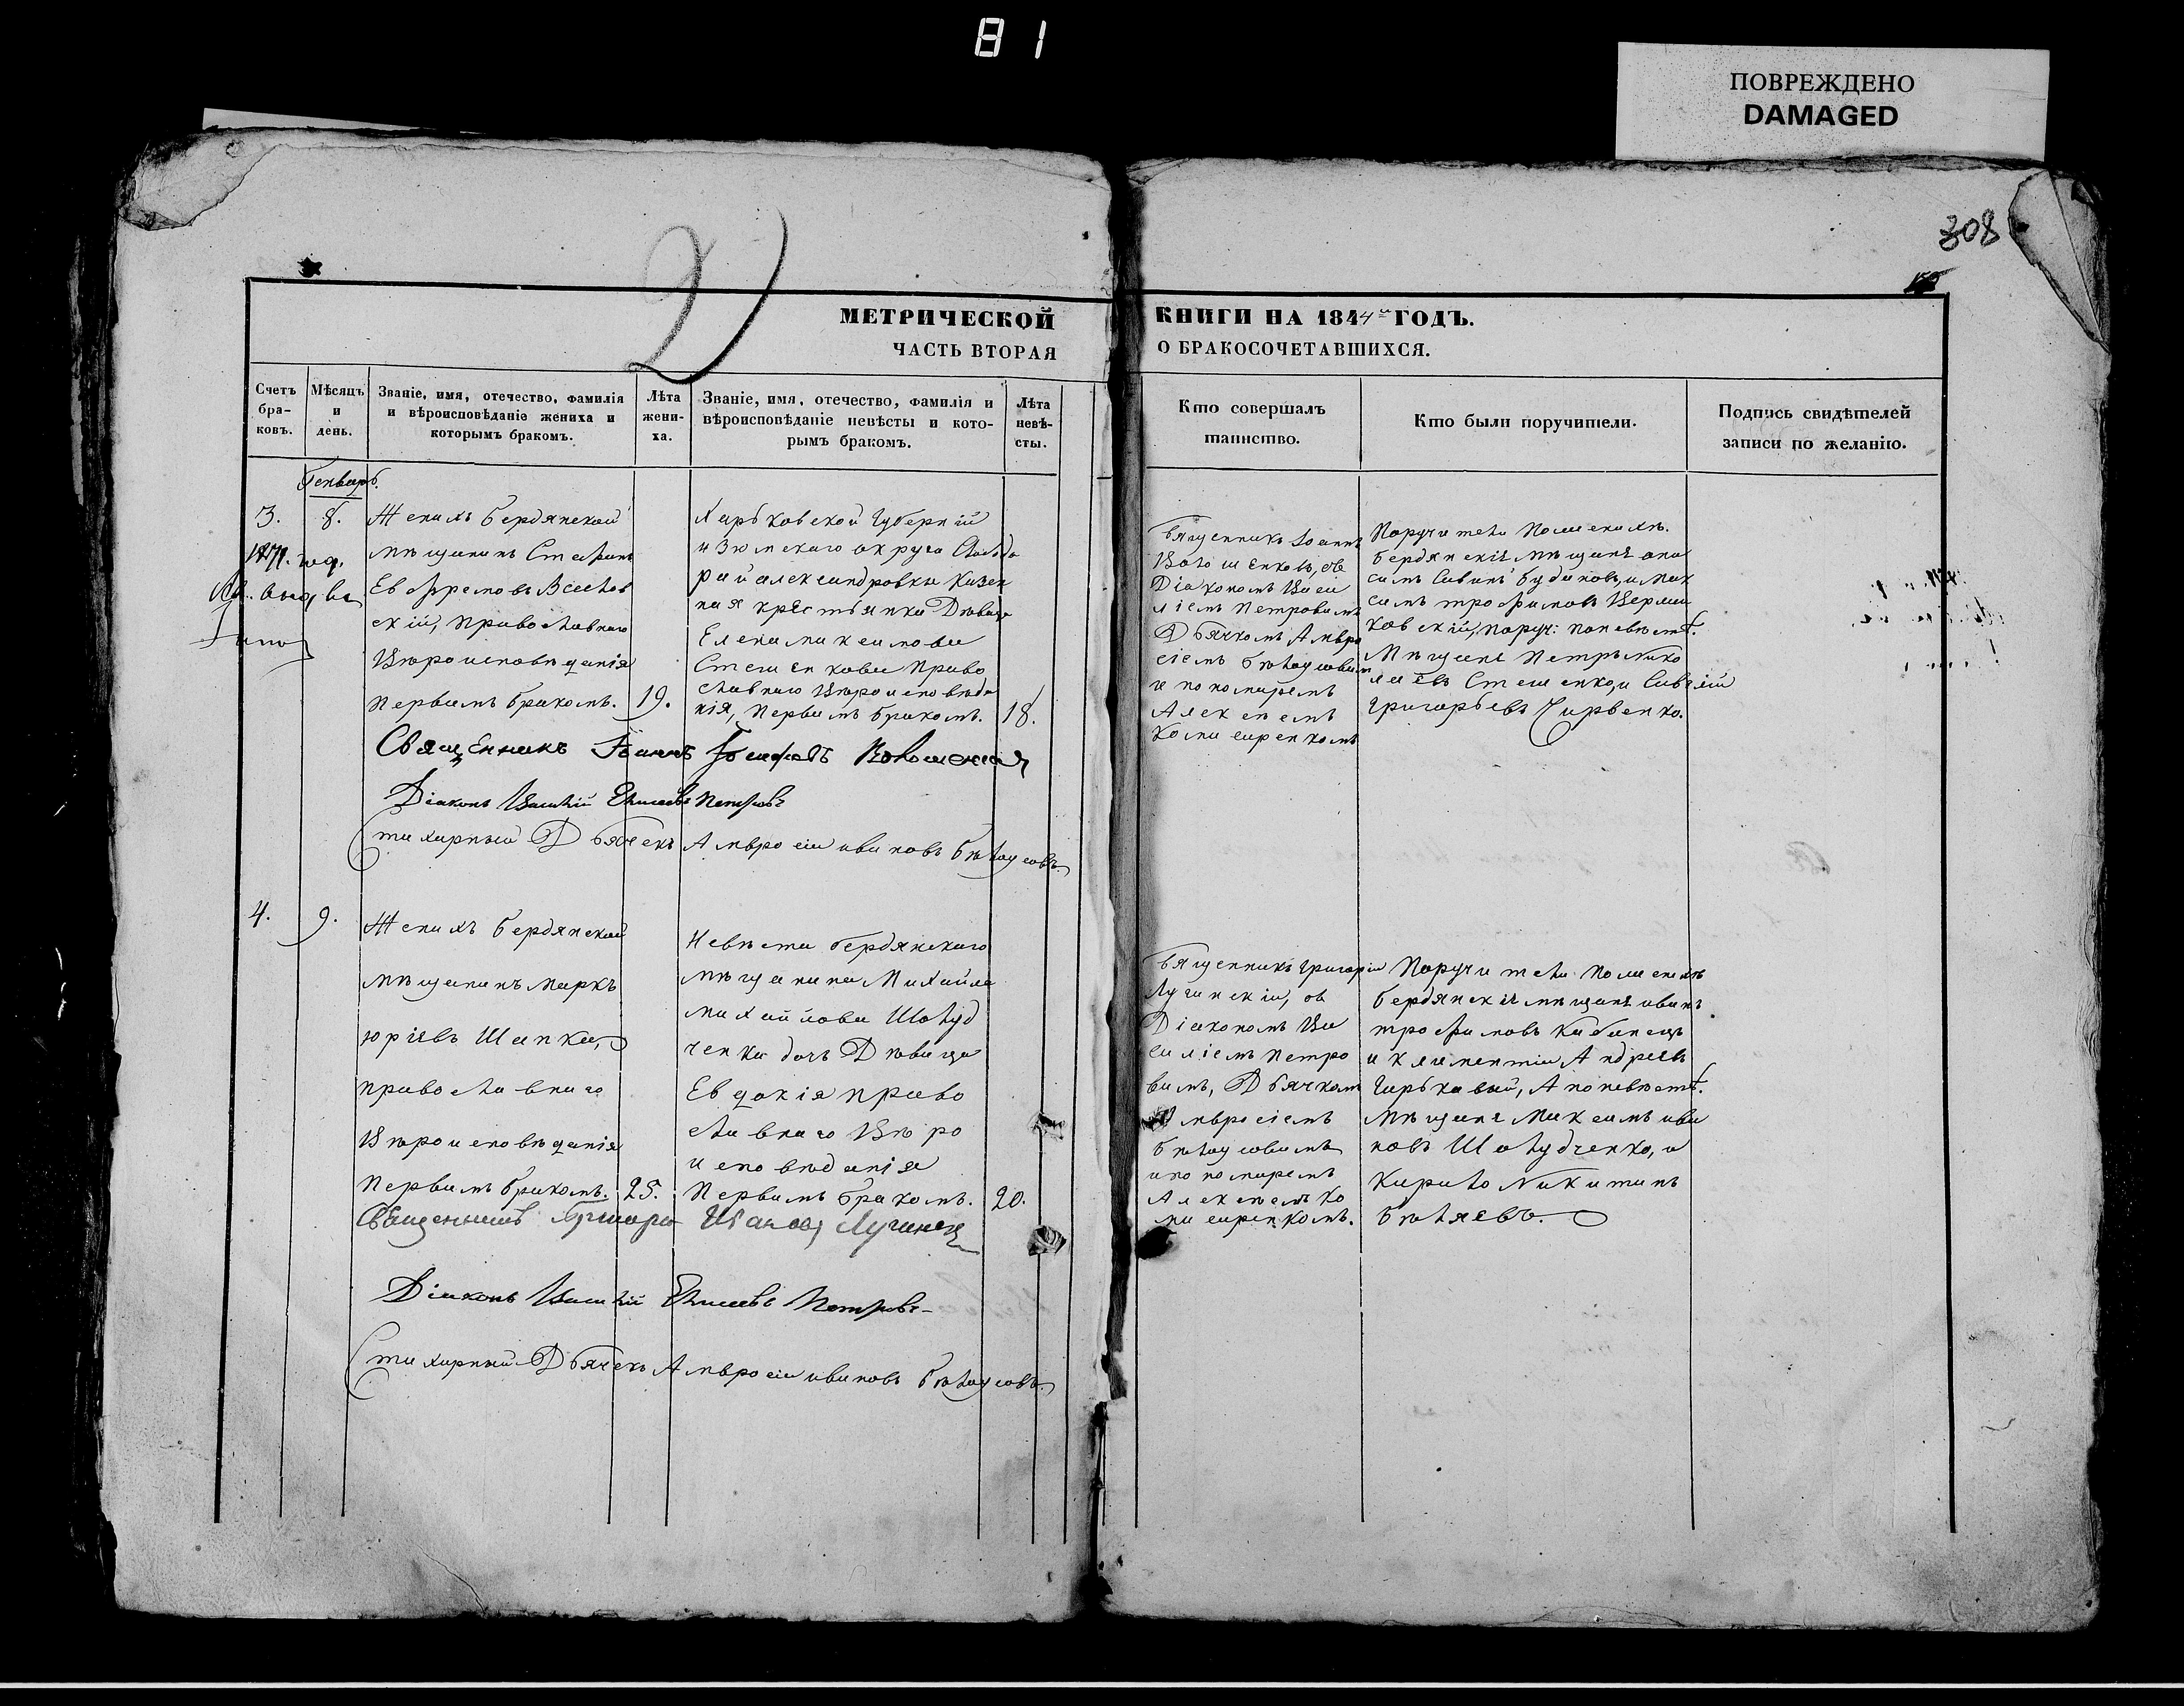 81
ПОВРЕЖДЕНО
DAMAGED
308
МЕТРИЧЕСКОЙ КНИГИ НА 1844й ГОДЪ.
ЧАСТЬ ВТОРАЯ О БРАКОСОЧЕТАВШИХСЯ.
Счетъ бра-ковъ.
Мѣсяцъ и день.
Званіе, имя, отечество, фамилія
и вѣроисповѣданіе жениха и
которымъ бракомъ.
Лѣта жени-ха.
Званіе, имя, отечество, фамилія и
вѣроисповѣданіе невѣсты и кото-
рымъ бракомъ.
Лѣта невѣ-сты.
Кто совершалъ
таинство.
Кто были поручители.
Подпись свидѣтелей
записи по желанію.
Генварь.
3.
8.
Женихъ бердянской
мѣщанинъ Стефанъ
Ефремовъ
скій, православнаго
вѣроисповѣданія
первымъ бракомъ.
19.
Харьковской губерніи
изюмскаго округа
александровки казен
ная крестьянка Дѣвица
Елена максимова
Стешенкова право
славнаго вѣроисповѣда
нія, первымъ бракомъ.
18.
Священникъ Іоаннъ
Волошенковъ, съ
Діакономъ Васи
ліемъ Петровымъ
Дьячкомъ Амвро
сіемъ бѣлоусовымъ
и пономаремъ
Алексѣемъ
Поручители по женихѣ.
бердянскіе мѣщане
симъ трофимовъ
ковскій, поруч: по невѣстѣ.
Мѣщане Петръ Нико
лаевъ Стешенко, и Савелій
григорьевъ Чирвенко.
Священникъ Іоаннъ
Діаконъ Василій Елисеевъ Петровъ
Стихарный Дьячекъ Амвросій ивановъ бѣлоусовъ
4.
9.
Женихъ бердянской
мѣщанинъ маркъ
юріевъ Шапка,
православнаго
вѣроисповѣданія
первымъ бракомъ.
25.
Невѣста бердянскаго
мѣщанина Михайла
михайлова Шолуд
ченка дочь Дѣвица
Евдокія право
славнаго вѣро
исповѣданія
первымъ бракомъ.
20.
Священникъ григорій
Лучинскій, съ
Діакономъ Ва
силіемъ петро
вымъ, Дьячкомъ
Амвросіемъ
бѣлоусовымъ
и пономаремъ
Алексѣемъ
Поручители по женихѣ
бердянскіе мѣщане иванъ
трофимовъ Кабанецъ
и климентій Андреевъ
Гарькавый, А по невѣстѣ.
мѣщане Максимъ ива
новъ Шолудченко, и
Кирило Никитинъ
бѣляевъ.
Священникъ Григорій Ивановъ Лучинскій
Діаконъ Василій Елисеевъ Петровъ
Стихарный Дьячекъ Амвросій ивановъ бѣлоусовъ.